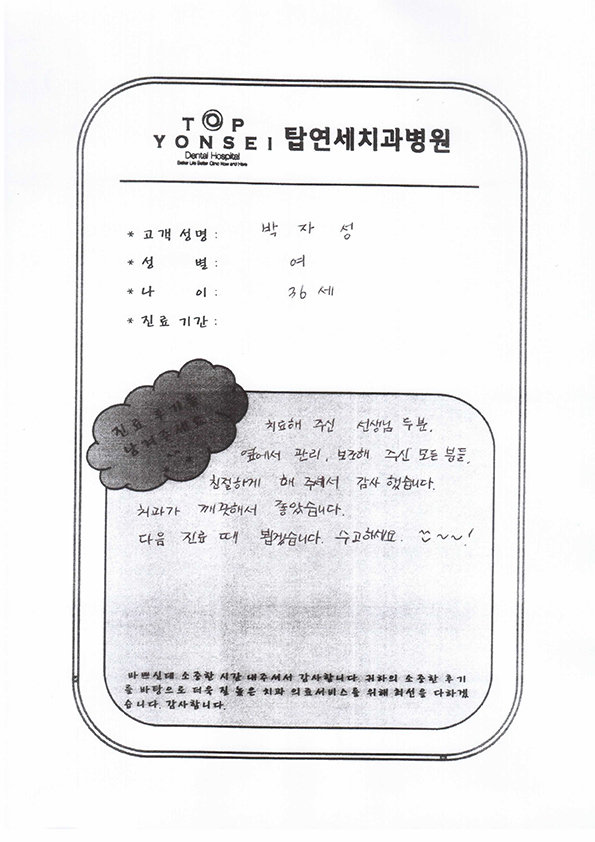 TOP
YONSEI 탑연세치과병원
Dental Hospital
Better Life Better Clinic Now and Here
* 고객성명 : 박 자 성
* 성 별 : 여
* 나 이 : 36 세
* 진료 기간 :
진료 후기를
남겨주세요
치료해 주신 선생님 두분.
옆에서 관리, 보조해 주신 모든 분들.
친절하게 해 주셔서 감사 했습니다.
치과가 깨끗해서 좋았습니다.
다음 진료 때 뵙겠습니다. 수고하세요. ~~!
바쁘신데 소중한 시간 내주셔서 감사합니다. 귀하의 소중한 후기
를 바탕으로 더욱 질 높은 치과 의료서비스를 위해 최선을 다하겠
습니다. 감사합니다.